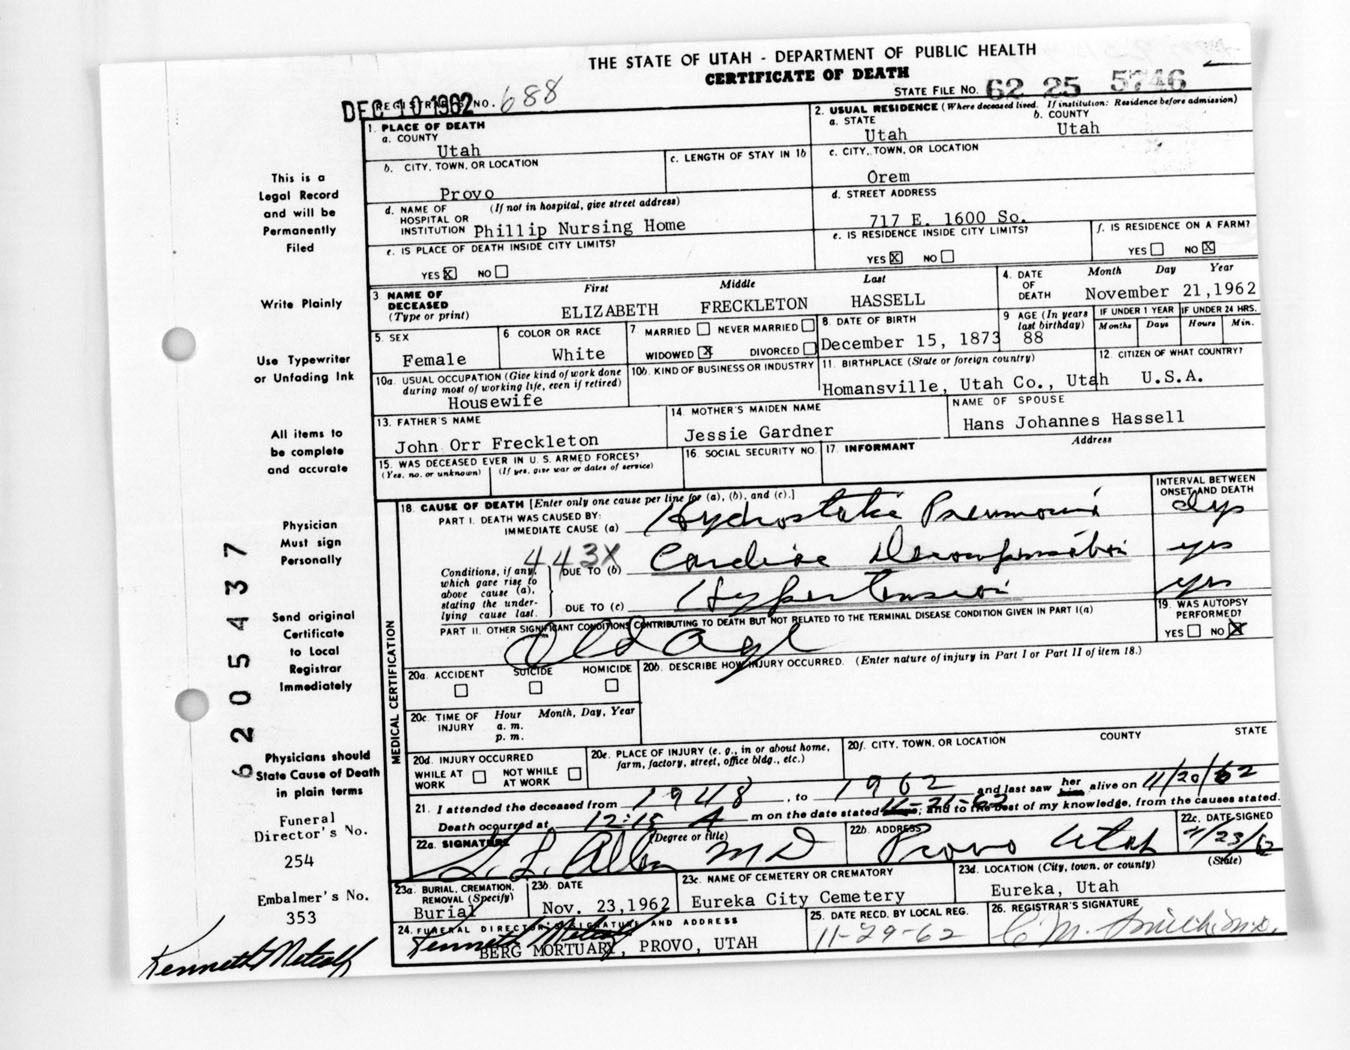 THE STATE OF UTAH - DEPARTMENT OF PUBLIC HEALTH
CERTIFICATE OF DEATH
DEC 10 1962 REGISTRAR'S NO. 688
STATE FILE NO. 62 25 5746
1. PLACE OF DEATH
a. COUNTY
Utah
2. USUAL RESIDENCE (Where deceased lived. If institution: Residence before admission)
a. STATE
Utah
b. COUNTY
Utah
b. CITY, TOWN, OR LOCATION
Provo
c. LENGTH OF STAY IN 1b
c. CITY, TOWN, OR LOCATION
Orem
d. NAME OF HOSPITAL OR INSTITUTION (If not in hospital, give street address)
Phillip Nursing Home
d. STREET ADDRESS
717 E. 1600 So.
e. IS PLACE OF DEATH INSIDE CITY LIMITS?
YES X NO
e. IS RESIDENCE INSIDE CITY LIMITS?
YES X NO
f. IS RESIDENCE ON A FARM?
YES NO X
3 NAME OF DECEASED (Type or print)
First Middle Last
ELIZABETH FRECKLETON HASSELL
4. DATE OF DEATH Month Day Year
November 21,1962
5. SEX
Female
6 COLOR OR RACE
White
7 MARRIED NEVER MARRIED
WIDOWED X DIVORCED
8. DATE OF BIRTH
December 15, 1873
9 AGE (In years last birthday)
88
IF UNDER 1 YEAR
Months Days
IF UNDER 24 HRS.
Hours Min.
10a. USUAL OCCUPATION (Give kind of work done during most of working life, even if retired)
Housewife
10b. KIND OF BUSINESS OR INDUSTRY
11. BIRTHPLACE (State or foreign country)
Homansville, Utah Co., Utah
12. CITIZEN OF WHAT COUNTRY?
U.S.A.
13. FATHER'S NAME
John Orr Freckleton
14. MOTHER'S MAIDEN NAME
Jessie Gardner
NAME OF SPOUSE
Hans Johannes Hassell
15. WAS DECEASED EVER IN U.S. ARMED FORCES?
(Yes, no, or unknown) (If yes, give war or dates of service)
16. SOCIAL SECURITY NO.
17. INFORMANT Address
MEDICAL CERTIFICATION
18. CAUSE OF DEATH [Enter only one cause per line for (a), (b), and (c).]
INTERVAL BETWEEN ONSET AND DEATH
PART I. DEATH WAS CAUSED BY:
IMMEDIATE CAUSE (a) Hydrostatic Pneumonia dys
443X
Conditions, if any, which gave rise to above cause (a), stating the underlying cause last.
DUE TO (b) Cardiac Decompensation yrs
DUE TO (c) Hypertension yrs
PART II. OTHER SIGNIFICANT CONDITIONS CONTRIBUTING TO DEATH BUT NOT RELATED TO THE TERMINAL DISEASE CONDITION GIVEN IN PART I(a)
Old Age
19. WAS AUTOPSY PERFORMED?
YES NO X
20a. ACCIDENT SUICIDE HOMICIDE
20b. DESCRIBE HOW INJURY OCCURRED. (Enter nature of injury in Part I or Part II of item 18.)
20c. TIME OF INJURY Hour Month, Day, Year
a. m.
p. m.
20d. INJURY OCCURRED
WHILE AT WORK NOT WHILE AT WORK
20e. PLACE OF INJURY (e. g., in or about home, farm, factory, street, office bldg., etc.)
20f. CITY, TOWN, OR LOCATION COUNTY STATE
21. I attended the deceased from 1948, to 1962 and last saw her alive on 11/20/62
Death occurred at 12:15 A m on the date stated 11-21-62; and to the best of my knowledge, from the causes stated.
22a. SIGNATURE (Degree or title)
L. L. Allen MD
22b. ADDRESS
Provo Utah
22c. DATE SIGNED
11/23/62
23a. BURIAL, CREMATION, REMOVAL (Specify)
Burial
23b. DATE
Nov. 23,1962
23c. NAME OF CEMETERY OR CREMATORY
Eureka City Cemetery
23d. LOCATION (City, town, or county) (State)
Eureka, Utah
24. FUNERAL DIRECTOR'S SIGNATURE AND ADDRESS
Kenneth Metcalf
BERG MORTUARY, PROVO, UTAH
25. DATE RECD. BY LOCAL REG.
11-29-62
26. REGISTRAR'S SIGNATURE
C. M. Smith M.D.
This is a
Legal Record
and will be
Permanently
Filed
Write Plainly
Use Typewriter
or Unfading Ink
All items to
be complete
and accurate
Physician
Must sign
Personally
Send original
Certificate
to Local
Registrar
Immediately
Physicians should
State Cause of Death
in plain terms
Funeral
Director's No.
254
Embalmer's No.
353
Kenneth Metcalf
6205437